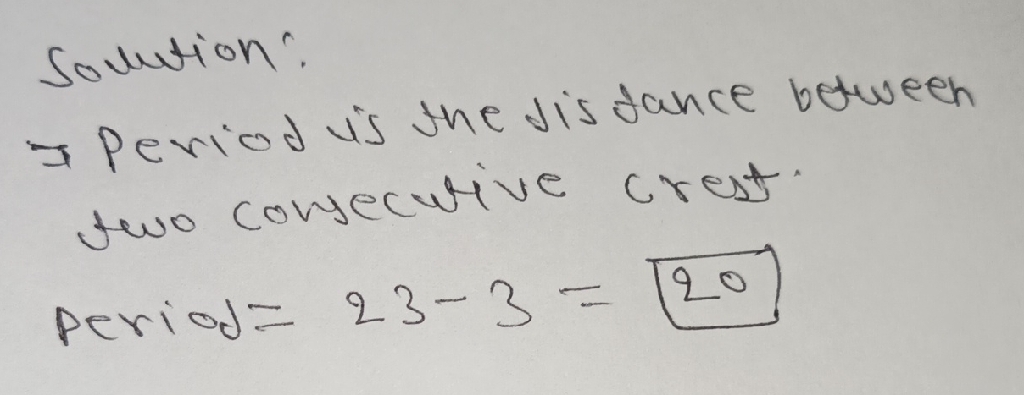 Solution:
→ Period is the distance between
two consecutive crest.
period = 23 - 3 = 20